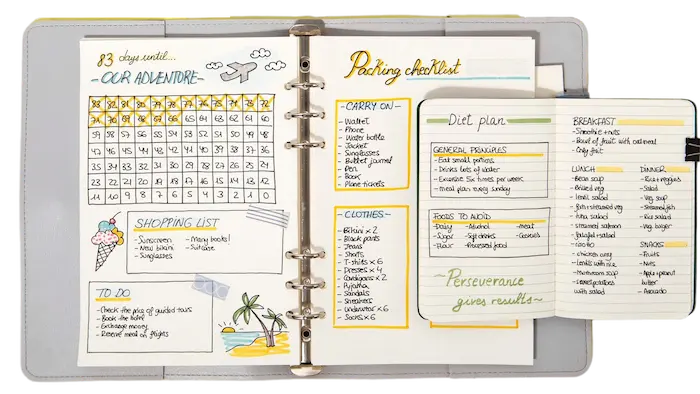 83 days until...
-OUR ADVENTURE-
83 82 81 80 79 78 77 76 75 74 73 72
71 70 69 68 67 66 65 64 63 62 61 60
59 58 57 56 55 54 53 52 51 50 49 48
47 46 45 44 43 42 41 40 39 38 37 36
35 34 33 32 31 30 29 28 27 26 25 24
23 22 21 20 19 18 17 16 15 14 13 12
11 10 9 8 7 6 5 4 3 2 1 0
SHOPPING LIST
-Sunscreen
-New bikini
-Sunglasses
-Many books!
-Suitcase
TO DO
-Check the price of guided tours
-Book the hotel
-Exchange money
-Reserve meal on flights
Packing checklist
-CARRY ON-
-Wallet
-Phone
-Water bottle
-Jacket
-Sunglasses
-Bullet journal
-Pen
-Book
-Plane tickets
-CLOTHES-
-Bikini x 2
-Black pants
-Jeans
-Shorts
-T-shirts x 6
-Dresses x 4
-Cardigans x 2
-Pyjama
-Sandals
-Sneakers
-Underwear x 6
-Socks x 6
Diet plan
GENERAL PRINCIPLES
-Eat small portions
-Drinks lots of water
-Exercise six times per week
-meal plan every sunday
FOODS TO AVOID
-Dairy
-Sugar
-Flour
-Alcohol
-Soft drinks
-Processed food
-Meat
-Cookies
-Perseverance
gives results-
BREAKFAST
-Smoothie +nuts
-Bowl of fruit with oatmeal
-Only fruit
LUNCH
-Bean soup
-Grilled veg
-lentil salad
-fish+steamed veg
-tuna salad
-steamed salmon
-falafel salad
-chicken curry
-Lentils with rice
-Mushroom soup
-sweet potatoes
with salad
DINNER
-Rice+veggies
-Salad
-Veg soup
-Steamed fish
-Rice salad
-Veg. lasagna
SNACKS
-Fruits
-Nuts
-Apple+peanut
butter
-Avocado